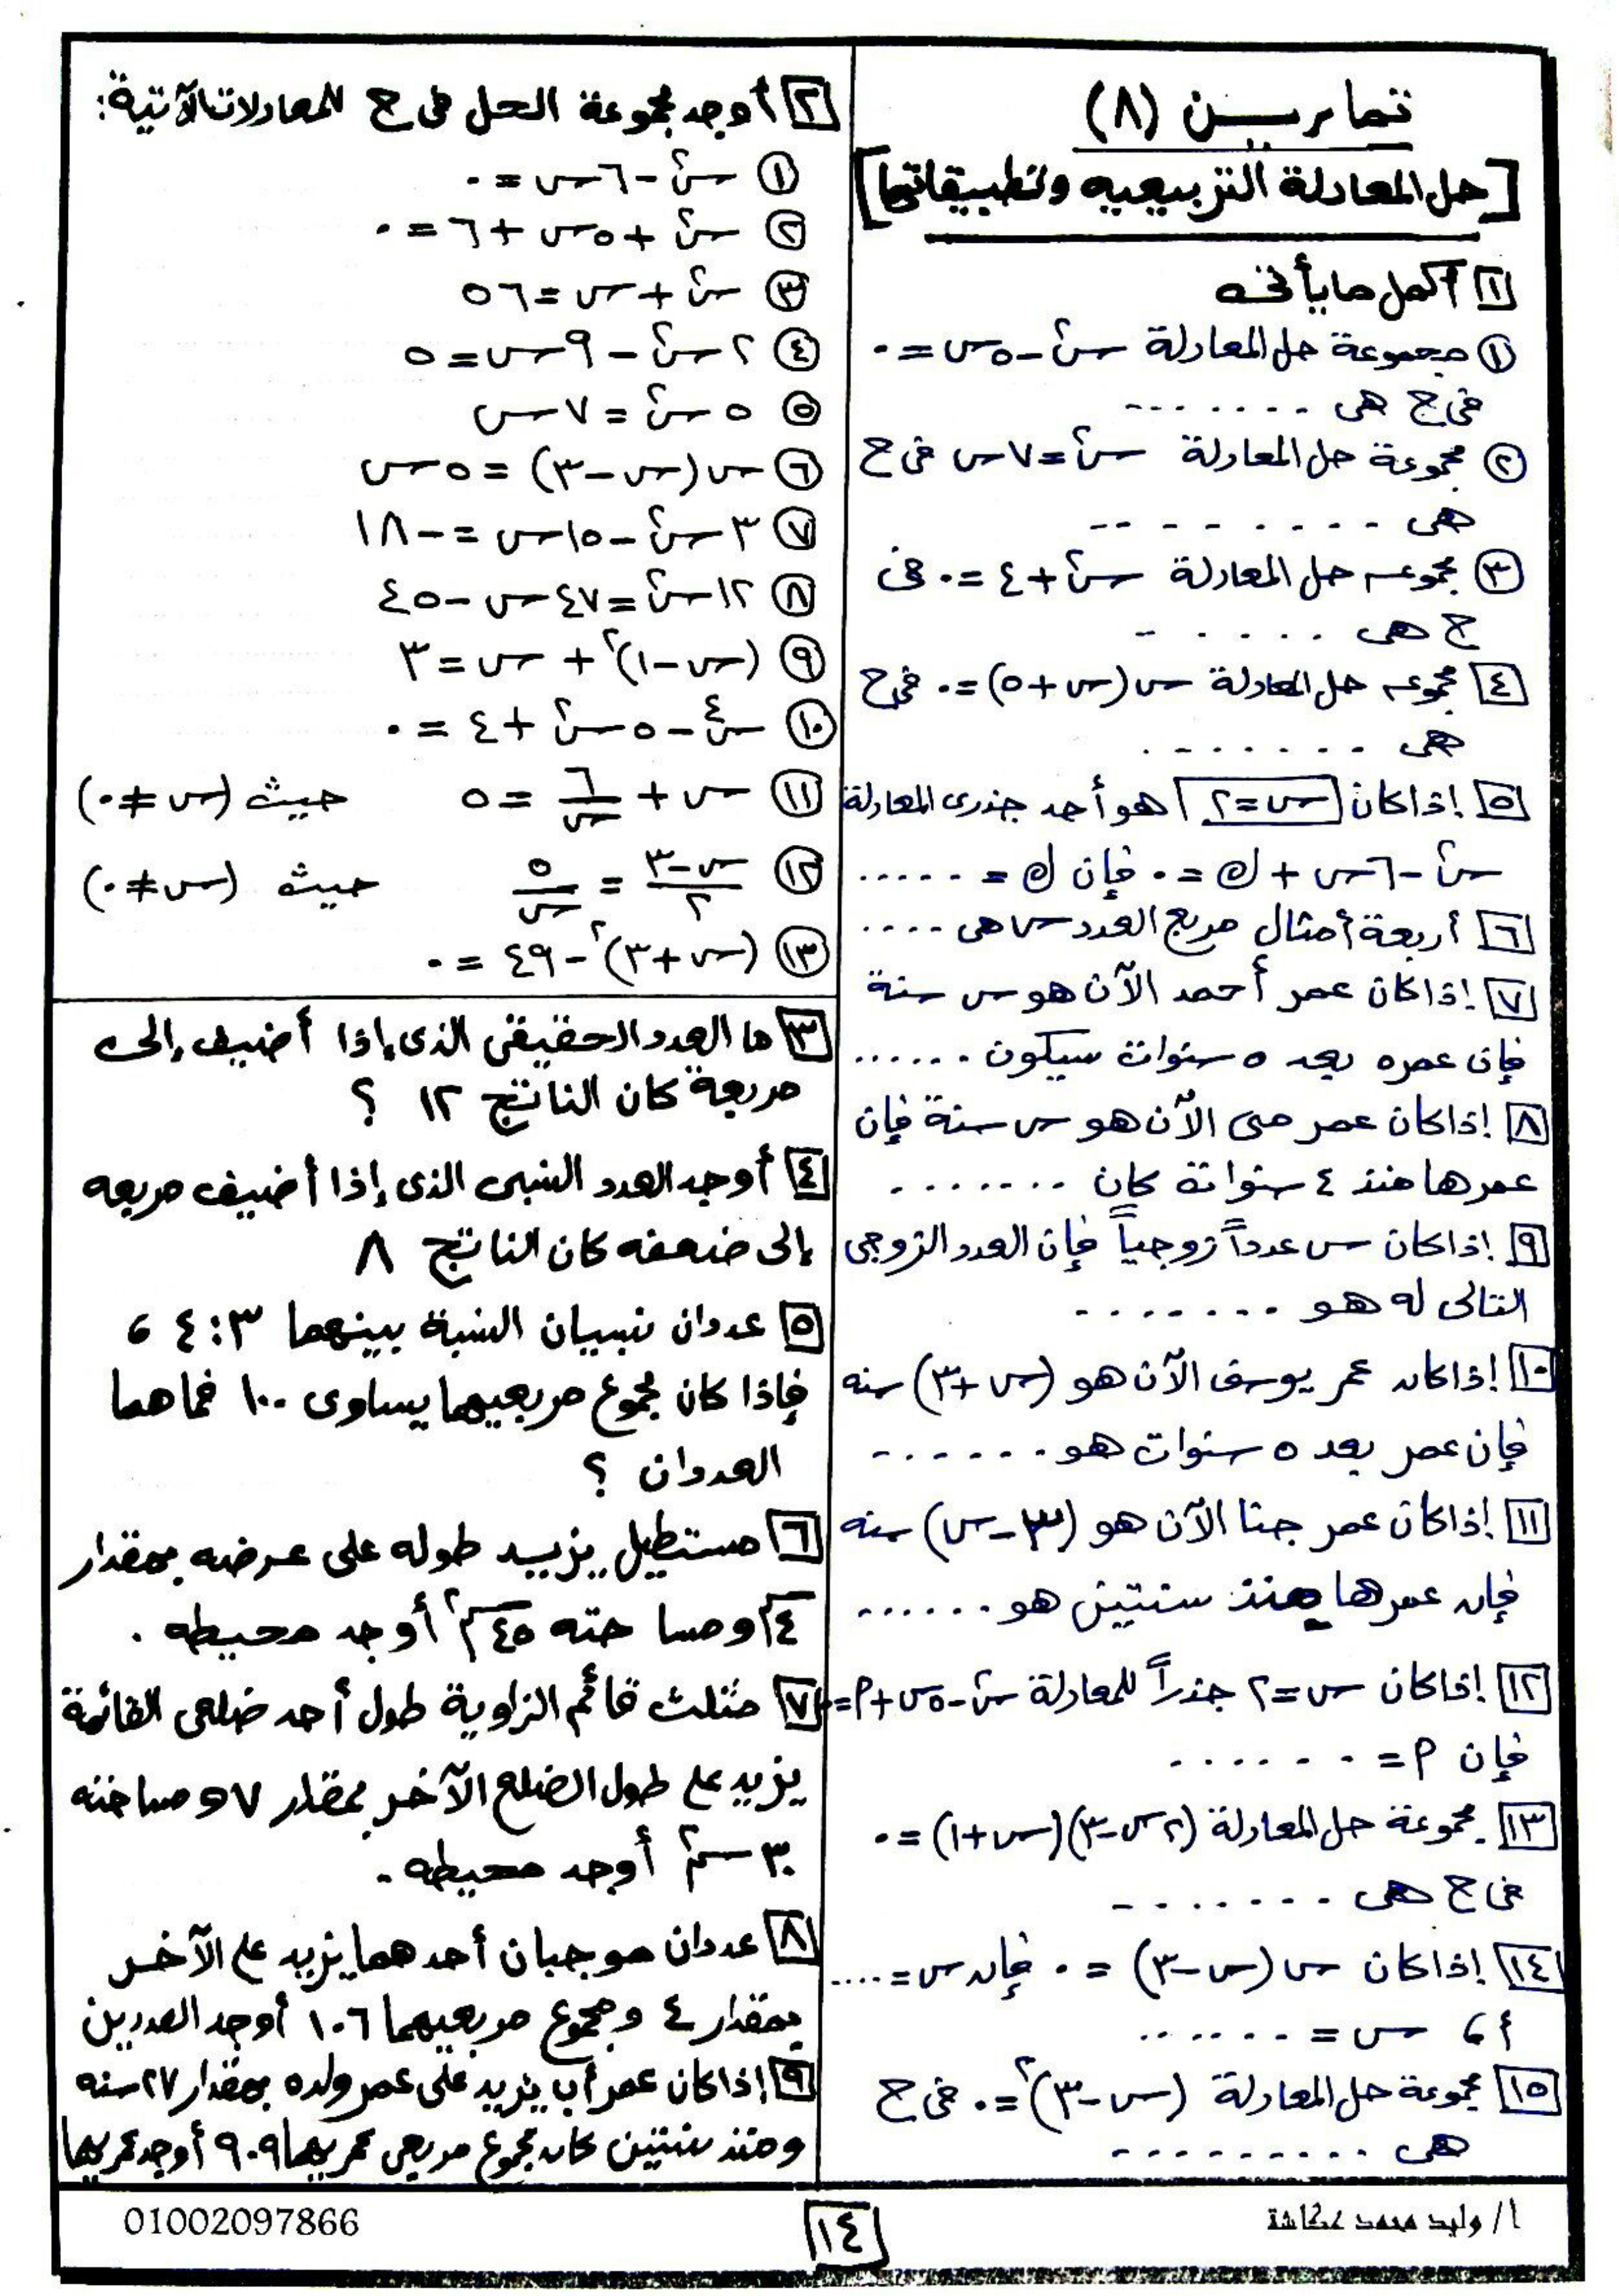 تمارين (٨)
[حل المعادلة التربيعيه وتطبيقاتها]
١ أكمل ما يأتى
① مجموعة حل المعادلة س٢ - ٥س = ٠
فى ح هى .......
② مجموعة حل المعادلة س٢ = ٧س فى ح
هى .........
③ مجموعه حل المعادلة س٢ + ٤ = ٠ فى
ح هى ......
٤ مجموعه حل المعادلة س(س + ٥) = ٠ فى ح
هى .......
٥ إذا كان س = ٢ هو أحد جذرى المعادلة
س٢ - ٦س + ك = ٠ فإن ك = .....
٦ أربعة أمثال مربع العدد س هى ....
٧ إذا كان عمر أحمد الآن هو س سنة
فإن عمره بعد ٥ سنوات سيكون ......
٨ إذا كان عمر منى الآن هو س سنة فإن
عمرها منذ ٤ سنوات كان .......
٩ إذا كان س عدداً زوجياً فإن العدد الزوجى
التالى له هو ........
١٠ إذا كان عمر يوسف الآن هو (س + ٣) سنه
فإن عمر بعد ٥ سنوات هو .......
١١ إذا كان عمر جنا الآن هو (٣ - س) سنه
فإن عمرها منذ سنتين هو ......
١٢ إذا كان س = ٢ جذراً للمعادلة س٢ - ٥س + م = ٠
فإن م = .......
١٣ مجموعة حل المعادلة (٢س - ٣)(س + ١) = ٠
فى ح هى ........
١٤ إذا كان س(س - ٣) = ٠ فإن س = ....
أ، س = ......
١٥ مجموعة حل المعادلة (س - ٣)٢ = ٠ فى ح
هى .........
٢ أوجد مجموعة الحل فى ح للمعادلات الآتية:
① س٢ - ٦س = ٠
② س٢ + ٥س + ٦ = ٠
③ س٢ + س = ٥٦
④ ٢س٢ - ٩س = ٥
⑤ ٥س٢ = ٧س
⑥ س(س - ٣) = ٥س
⑦ ٣س٢ - ١٥س = -١٨
⑧ ١٢س٢ = ٤٧س - ٤٥
⑨ (س - ١)٢ + س = ٣
⑩ س٤ - ٥س٢ + ٤ = ٠
⑪ س + ٦/س = ٥ حيث (س ≠ ٠)
⑫ (س - ٣)/٢ = ٥/س حيث (س ≠ ٠)
⑬ (س + ٣)٢ - ٤٩ = ٠
٣ ما العدد الحقيقى الذى إذا أضيف إلى
مربعة كان الناتج ١٢ ؟
٤ أوجد العدد النسبى الذى إذا أضيف مربعه
إلى ضعفه كان الناتج ٨
٥ عددان نسبيان النسبة بينهما ٣:٤ ،
فإذا كان مجموع مربعيهما يساوى ١٠٠ فما هما
العددان ؟
٦ مستطيل يزيد طوله على عرضه بمقدار
٤م ومساحته ٤٥م٢ أوجد محيطه .
٧ مثلث قائم الزاوية طول أحد ضلعى القائمة
يزيد على طول الضلع الآخر بمقدار ٧ ومساحته
٣٠سم٢ أوجد محيطه .
٨ عددان موجبان أحدهما يزيد على الآخر
بمقدار ٤ ومجموع مربعيهما ١٠٦ أوجد العددين
٩ إذا كان عمر أب يزيد على عمر ولده بمقدار ٢٧ سنه
ومنذ سنتين كان مجموع مربعى عمريهما ٩٠٩ أوجد عمريهما
أ/ وليد محمد عكاشة
١٤
01002097866